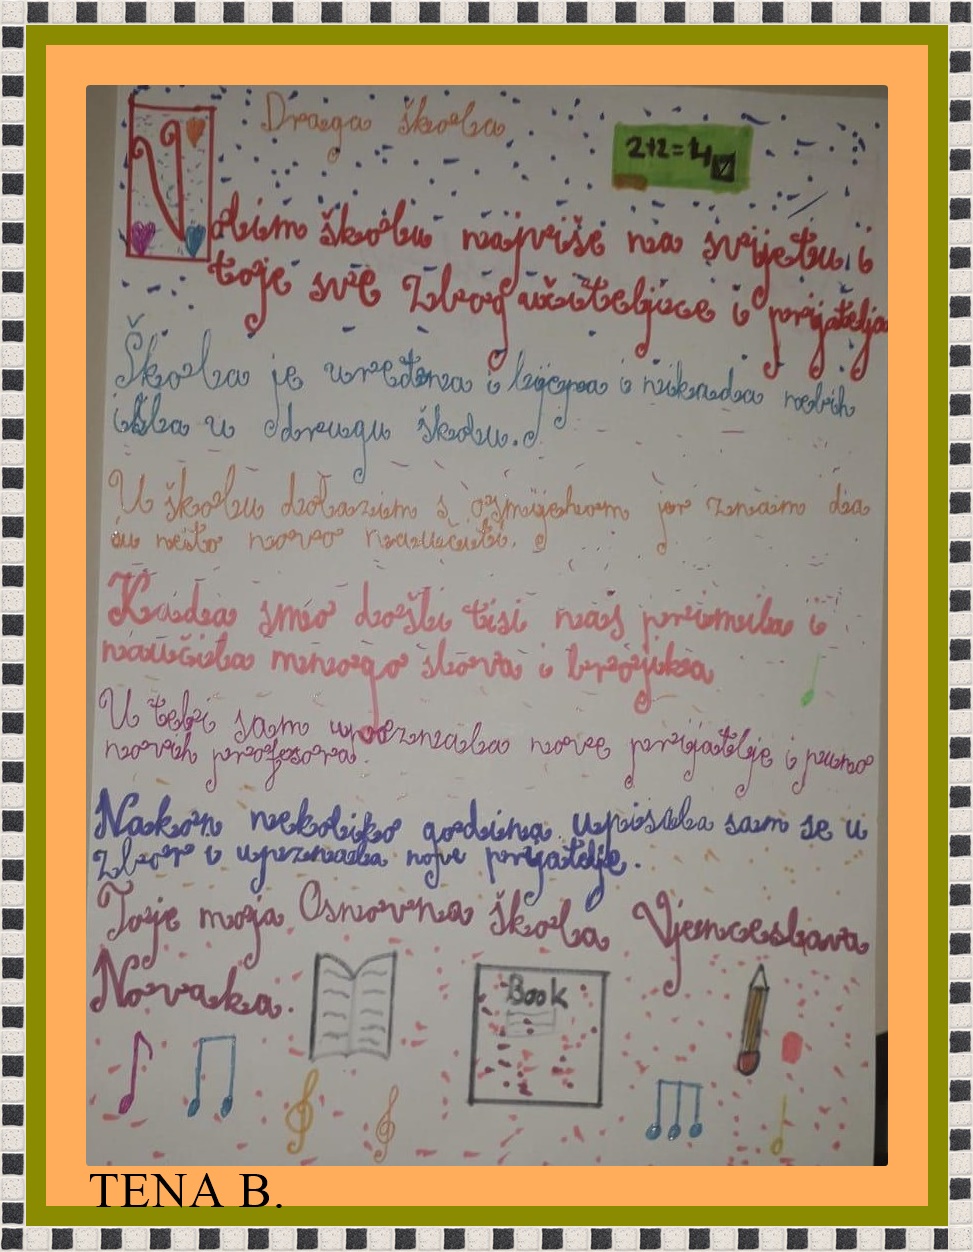 Draga škola
2+2=4
Volim školu najviše na svijetu i
toje sve zbog učiteljice i prijatelja
Škola je uređena i lijepa i nikada nebih
išla u drugu školu.
U školu dolazim s osmijehom jer znam da
ću nešto novo naučiti.
Kada smo došli tisi nas primila i
naučila mnogo slova i brojika
U tebi sam upoznala nove prijatelje i puno
novih profesora.
Nakon nekoliko godina upisala sam se u
zbor i upznala nove prijatelje.
Toje moja Osnovna škola Vjenceslava
Novaka.
Book
TENA B.